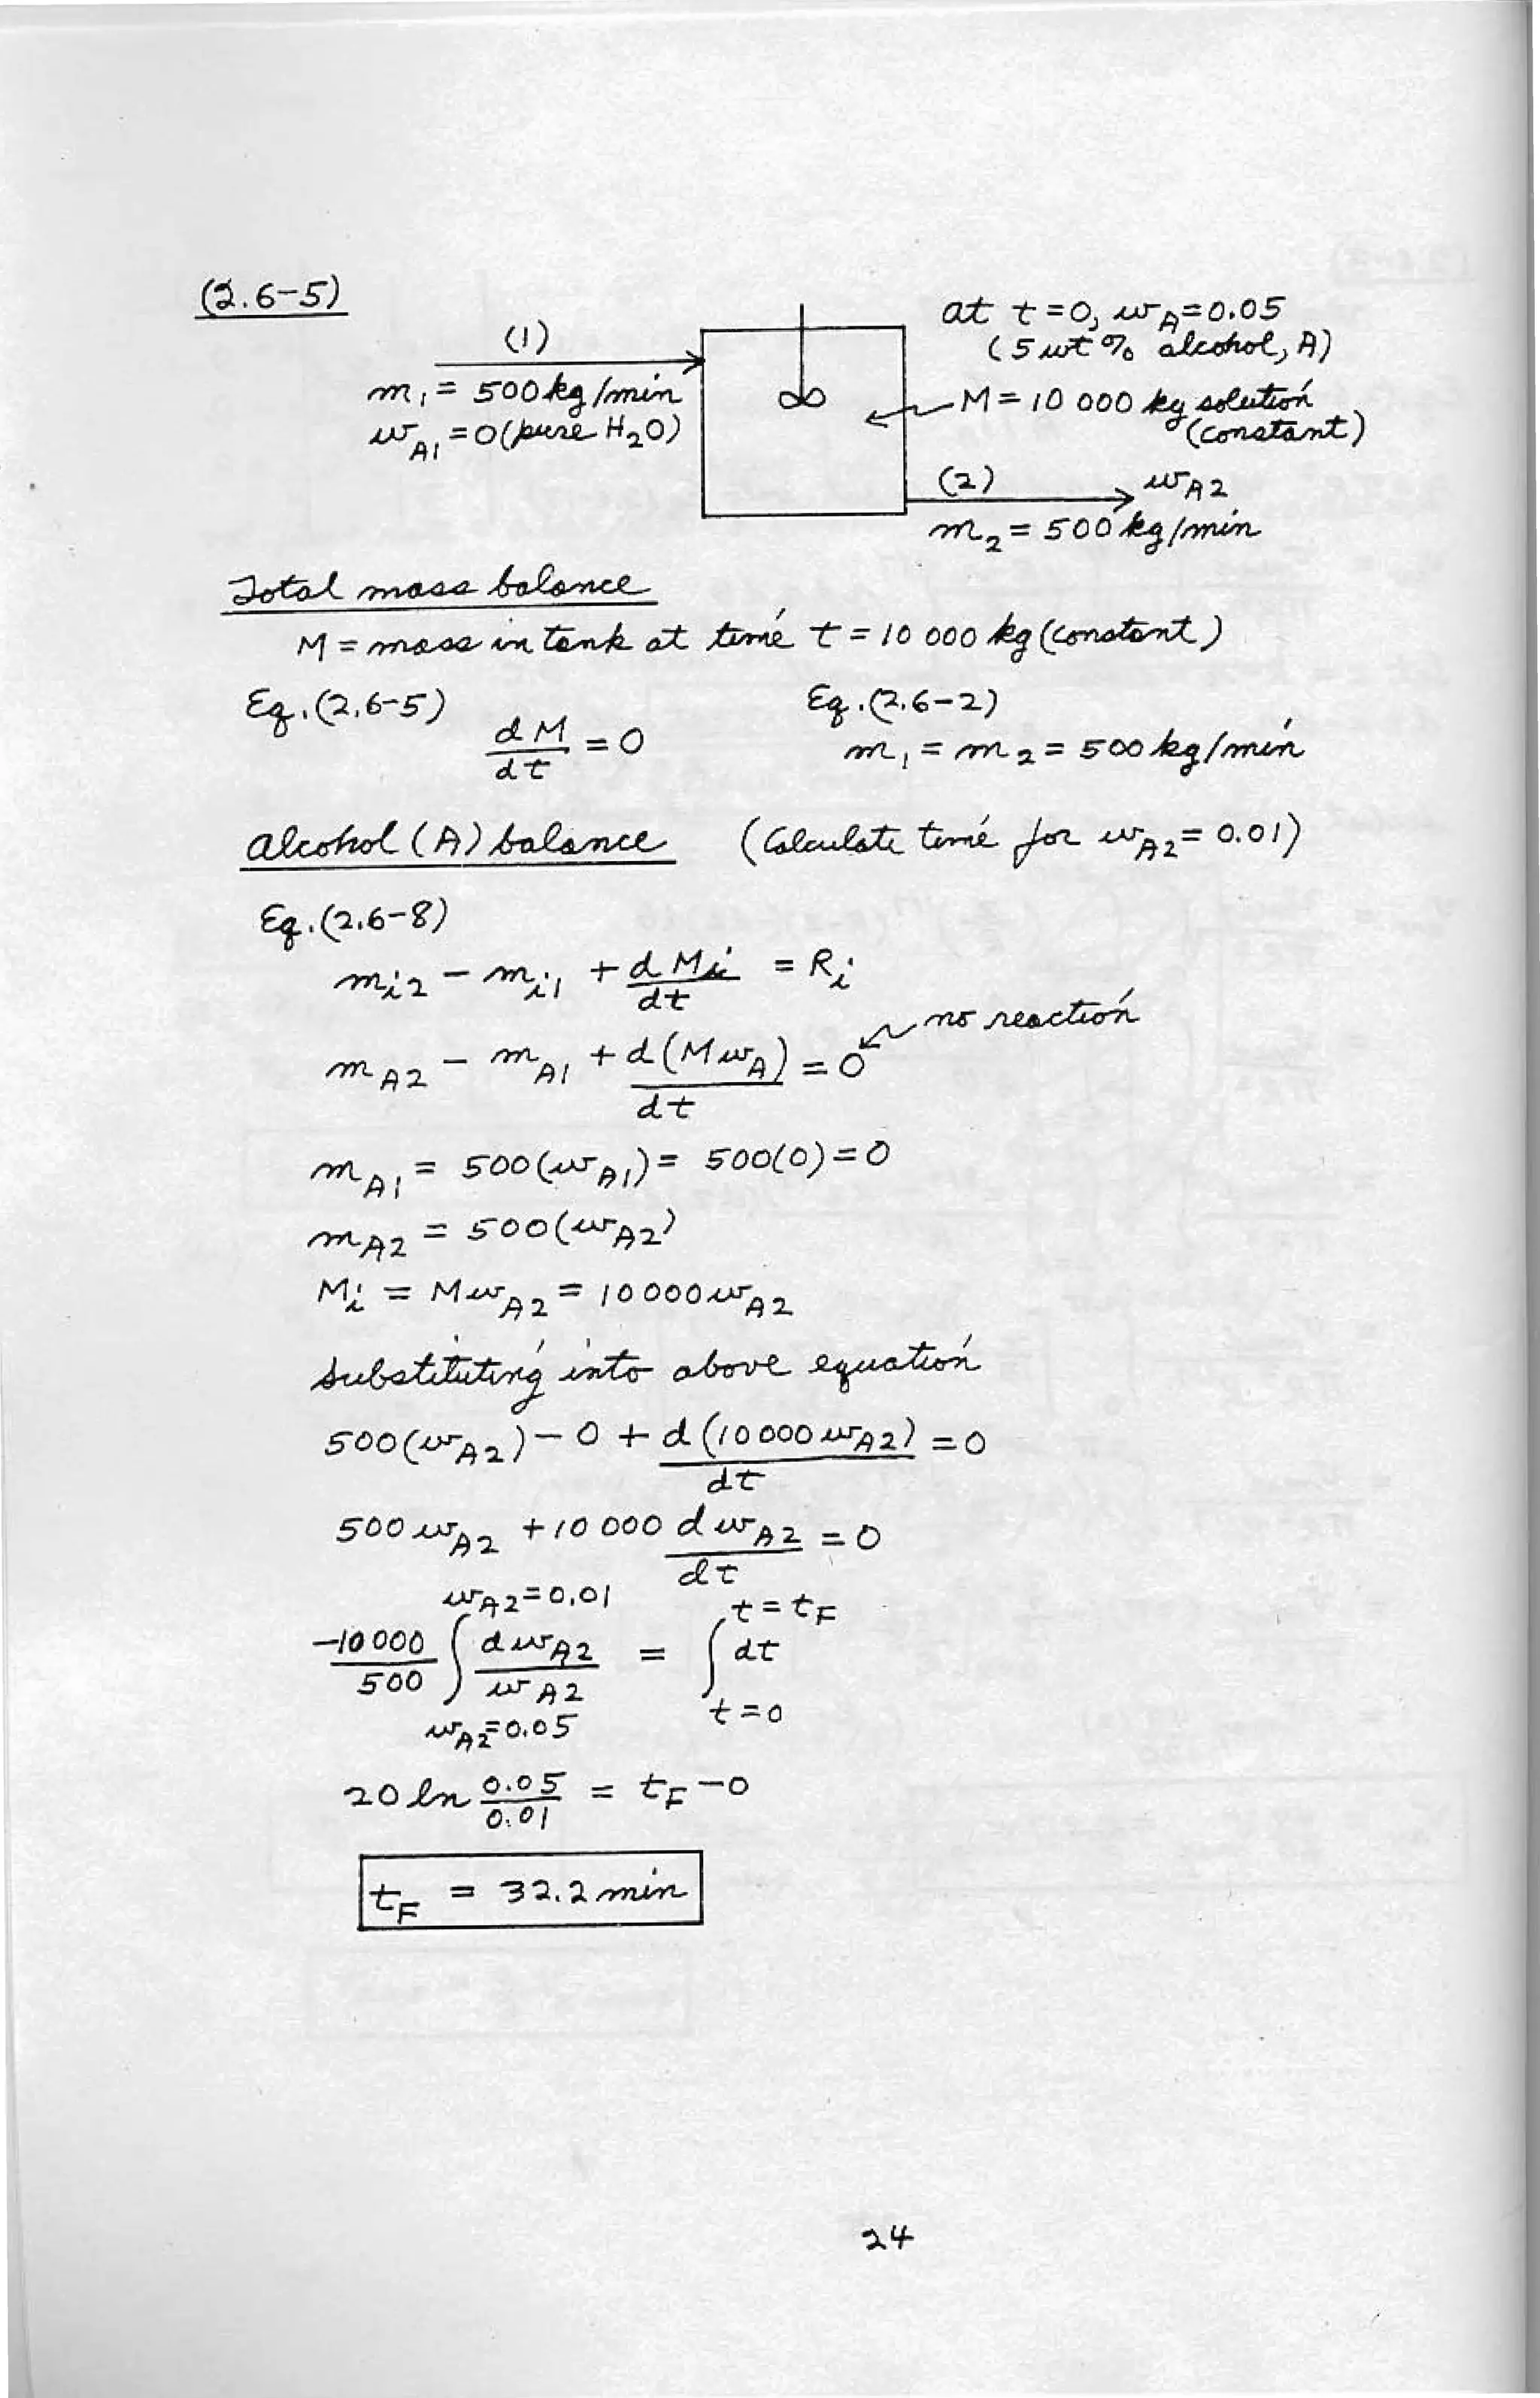 (2.6-5)
(1)
m₁ = 500 kg/min
w_A1 = 0 (pure H₂O)
at t = 0, w_A = 0.05
(5 wt % alcohol, A)
M = 10 000 kg solution
(constant)
(2) w_A2
m₂ = 500 kg/min
Total mass balance
M = mass in tank at time t = 10 000 kg (constant)
Eq. (2.6-5) Eq. (2.6-2)
dM/dt = 0 m₁ = m₂ = 500 kg/min
Alcohol (A) balance (Calculate time for w_A2 = 0.01)
Eq. (2.6-8)
m_i2 - m_i1 + dM_i/dt = R_i
no reaction
m_A2 - m_A1 + d(Mw_A)/dt = 0
m_A1 = 500(w_A1) = 500(0) = 0
m_A2 = 500(w_A2)
M_i = Mw_A2 = 10 000 w_A2
Substituting into above equation
500(w_A2) - 0 + d(10 000 w_A2)/dt = 0
500 w_A2 + 10 000 dw_A2/dt = 0
w_A2 = 0.01 t = t_F
-10 000/500 ∫ dw_A2/w_A2 = ∫ dt
w_A2 = 0.05 t = 0
20 ln 0.05/0.01 = t_F - 0
t_F = 32.2 min
24